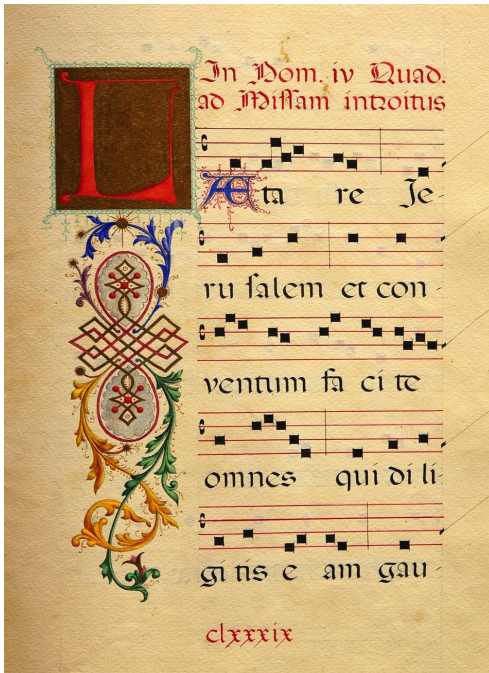 In Dom. iv Quad.
ad Missam introitus
LÆ ta re Je
ru salem et con -
ventum fa ci te
omnes qui di li-
gi tis e am gau -
clxxxix